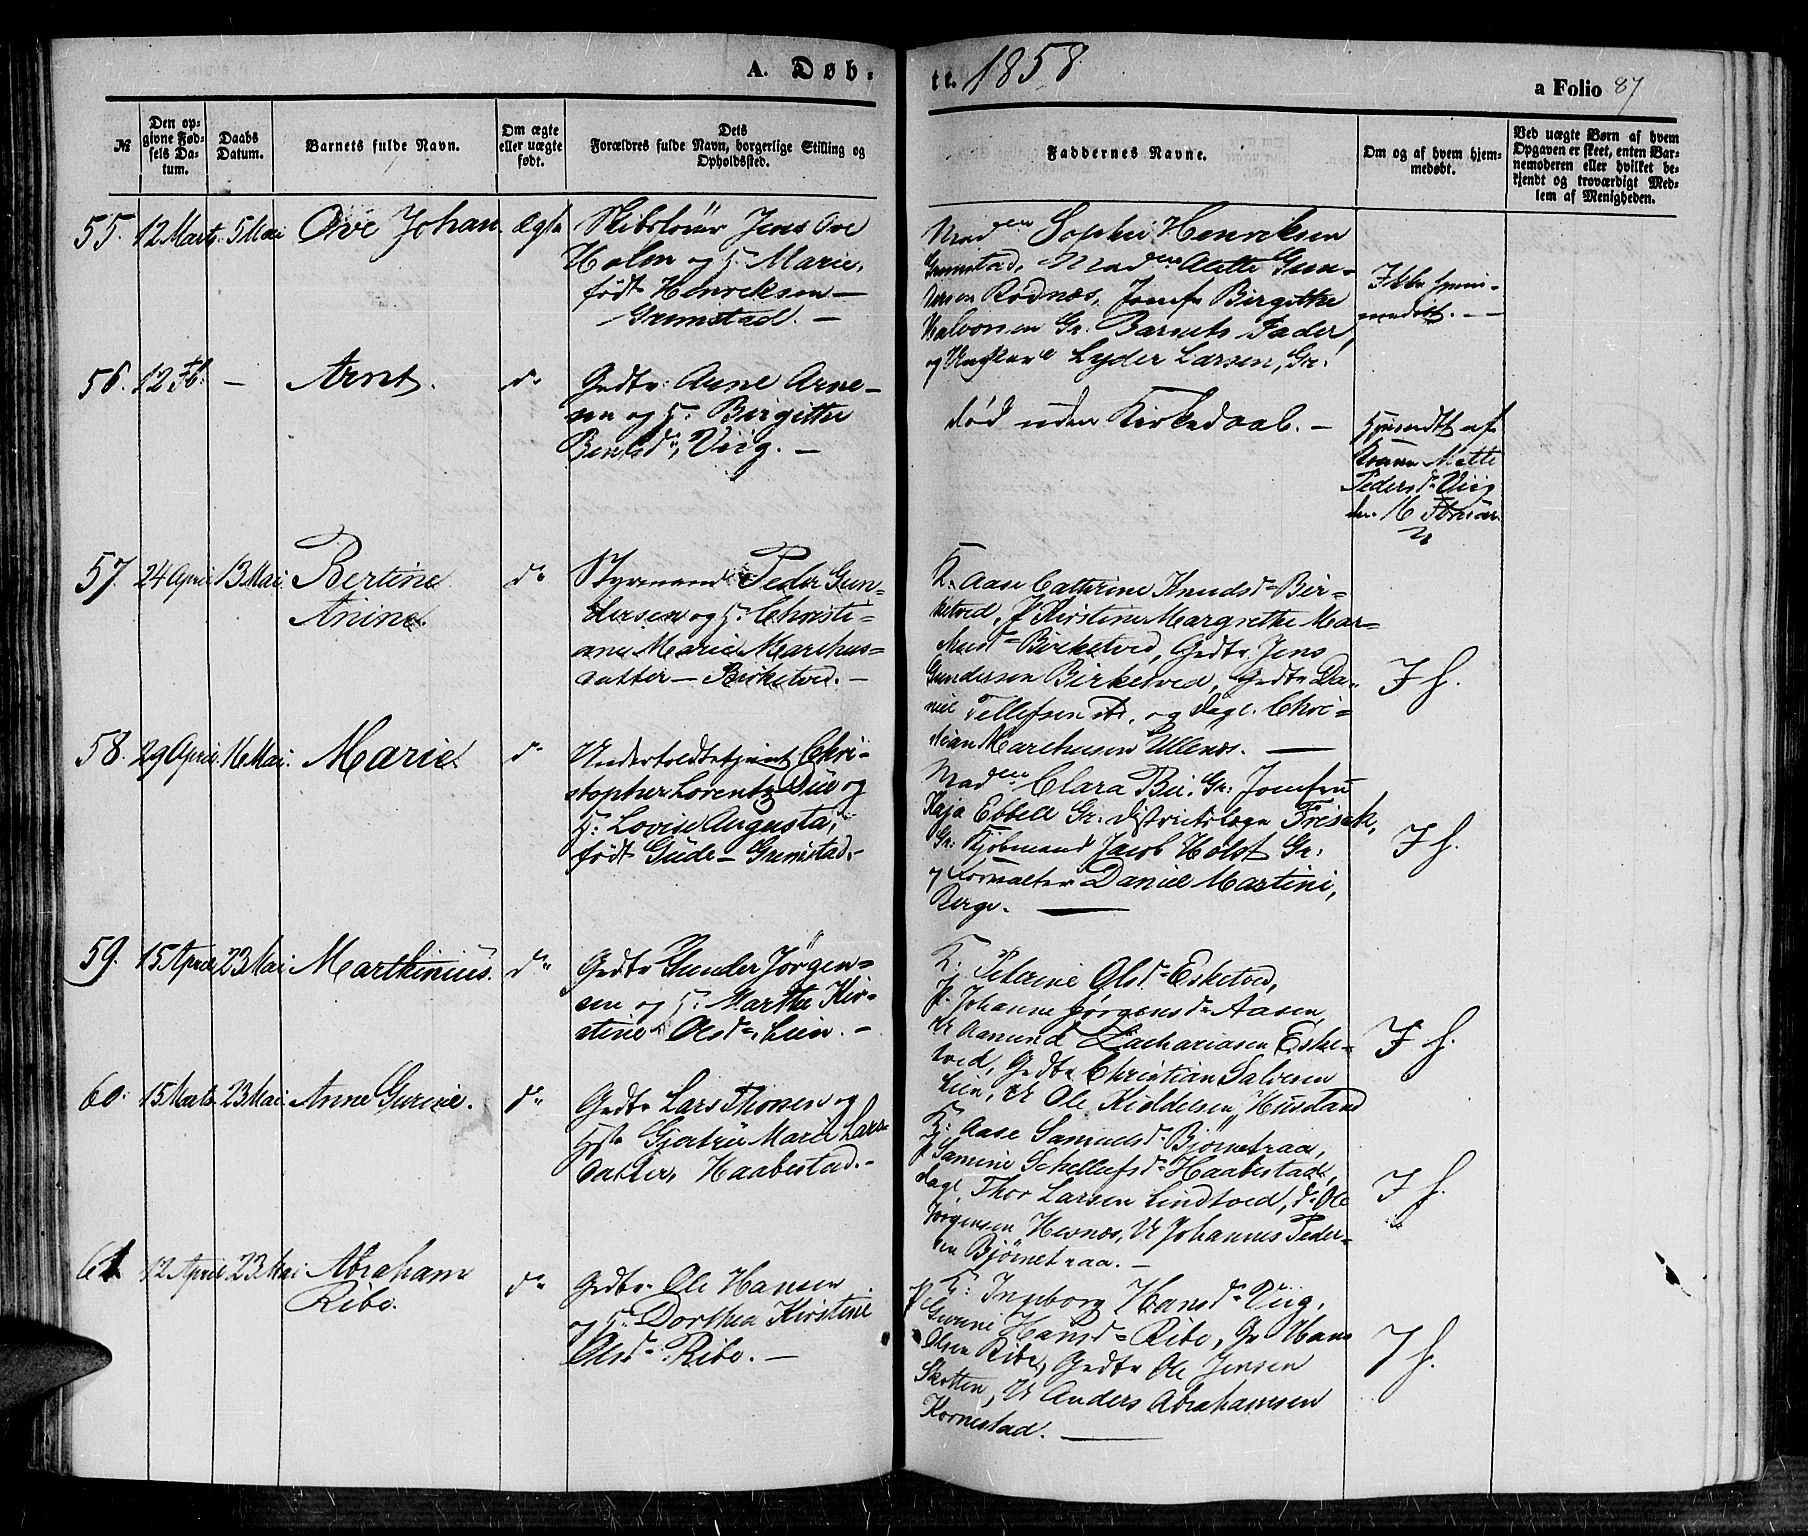 A. Døb-
te. 1858
a Folio 87
№
Den op-
givne Fød-
sels Da-
tum.
Daabs
Datum.
Barnets fulde Navn.
Om ægte
eller uægte
født.
Dets
Forældres fulde Navn, borgerlige Stilling og
Opholdssted.
Faddernes Navne.
Om og af hvem hjem-
medøbt.
Ved uægte Børn af hvem
Opgaven er skeet, enten Bar-
nemoderen eller hvilket be-
kjendt og troværdigt Med-
lem af Menigheden.
55. 12 Marts 5 Mai Ove Johan ægte
Jens Ove
Holm og H. Marie,
født Henriksen –
Grimstad. –
Mad en Sophie Henriksen
Grimstad, Mad en Alette Gun-
dersen Rødnæs, Jomfr Birgithe
Halvorsen Gr. Barnets Fader,
og Lyder Larsen, Gr.
Ikke hjem-
medøbt. –
56. 12 Fb: – Arnt. do
Gdbr: Arne Arne-
sen og H: Birgitte
Bentsd., Viig. –
død uden Kirkedaab. –
Hjemdbt af
Konen Mette
Pedersd. Viig
57. 24 April 13 Mai. Bertine
Anine. do
Styrmand Peder Gun-
dersen og H: Christi-
ane Marie Marchus-
datter – Birketved. –
K. Aase Cathrine Knudsd. Bir-
ketved, P Kirstine Margrethe Mar-
kusd. Birketved, Gdbr. Jens
Gundersen Birketved, Gdbr Da-
niel Tellefsen , og dagl. Chri-
stian Marchusen Ullenæs. –
I H.
58. 29 April 16 Mai. Marie do
Undertoldbetjent Chri-
stopher Lorentz Dü og
H: Lovise Augusta,
født Güde – Grimstad. –
Mad en Clara Gr: Jomfru
Kaja Ebbell Gr: Districtslæge Frisak,
Gr: Kjøbmand Jacob Holst Gr:
og Forvalter Daniel Martini,
Berge. –
I H.
59. 15 April 23 Mai Marthinius. do
Gdbr Gunder Jørgen-
sen og H: Marthe Kir-
stine Olsd., Lien. –
K: Peterine Olsd. Esketved,
P. Johanne Jørgensd. Aasen,
U Aamund Zachariasen Eske-
tved, Gdbr Christian Salvesen
Lien, U Ole Kiddelsen, Husstad
I H.
60. 15 Marts 23 Mai. Anne Gurine. do
Gdbr Lars Thorsen og
Hst Gjertrü Marie Lars-
datter, Haabestad. –
K: Aase Samuelsd. Bjørnetraa,
P Samine Schellefsd. Haabestad,
dagl. Thor Larsen Lindtved, do Ole
Jørgensen Hesnæs, U Johannes Peder-
sen Bjørnetraa. –
I H.
61 12 April 23 Mai Abraham
Ribe. do
Gdbr. Ole Hansen
og H: Dorthea Kirstine
Olsd. Ribe. –
K: Ingeborg Hansd. Viig,
P Gurine Hansd. Ribe, Gr Hans
Olsen Ribe, Gdbr Ole Jensen
Skotten, U Anders Abrahamsen
Kornestad. –
I H.